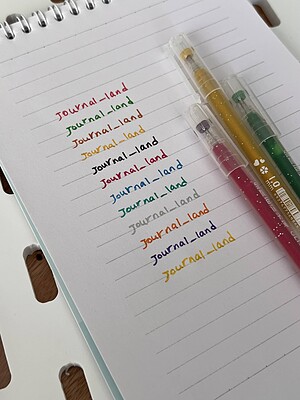 Journal_land
Journal_land
Journal_land
Journal_land
Journal_land
Journal_land
Journal_land
Journal_land
Journal_land
Journal_land
Journal_land
Journal_land
1.0